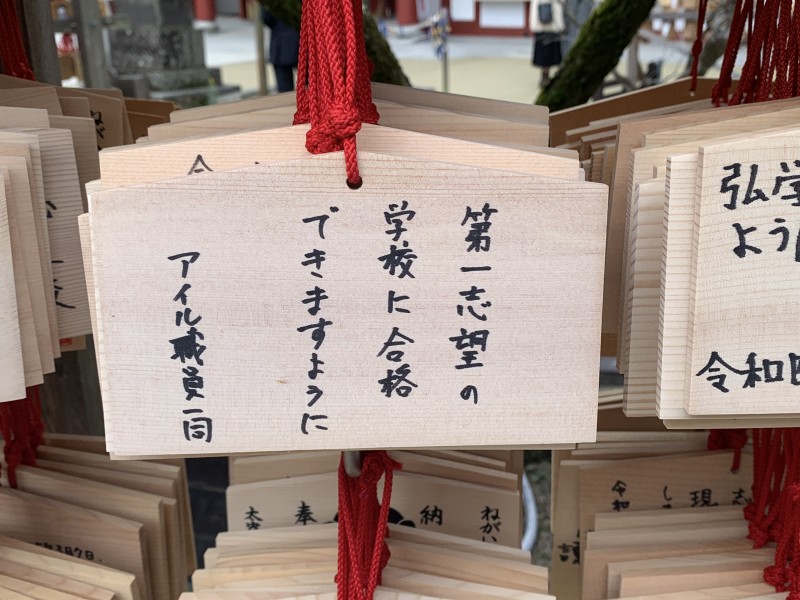 第一志望の
学校に合格
できますように
アイル職員一同
弘学
よう
令和四
奉
納
ねがい
令和
現
志